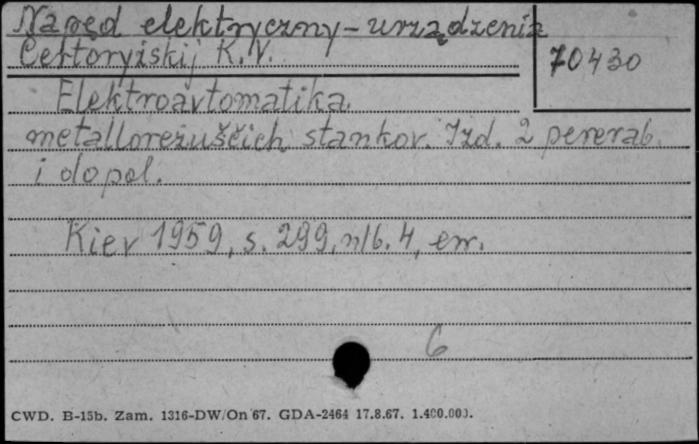 Napęd elektryczny - urządzenia
Čertoryžskij K. V.
70430
Elektroavtomatika
metallorežuščich stankov. Izd. 2 pererab.
i dopol.
Kiev 1959, s. 299, nlb. 4, err.
6
CWD. B-15b. Zam. 1316-DW/On 67. GDA-2464 17.8.67. 1.400.000.